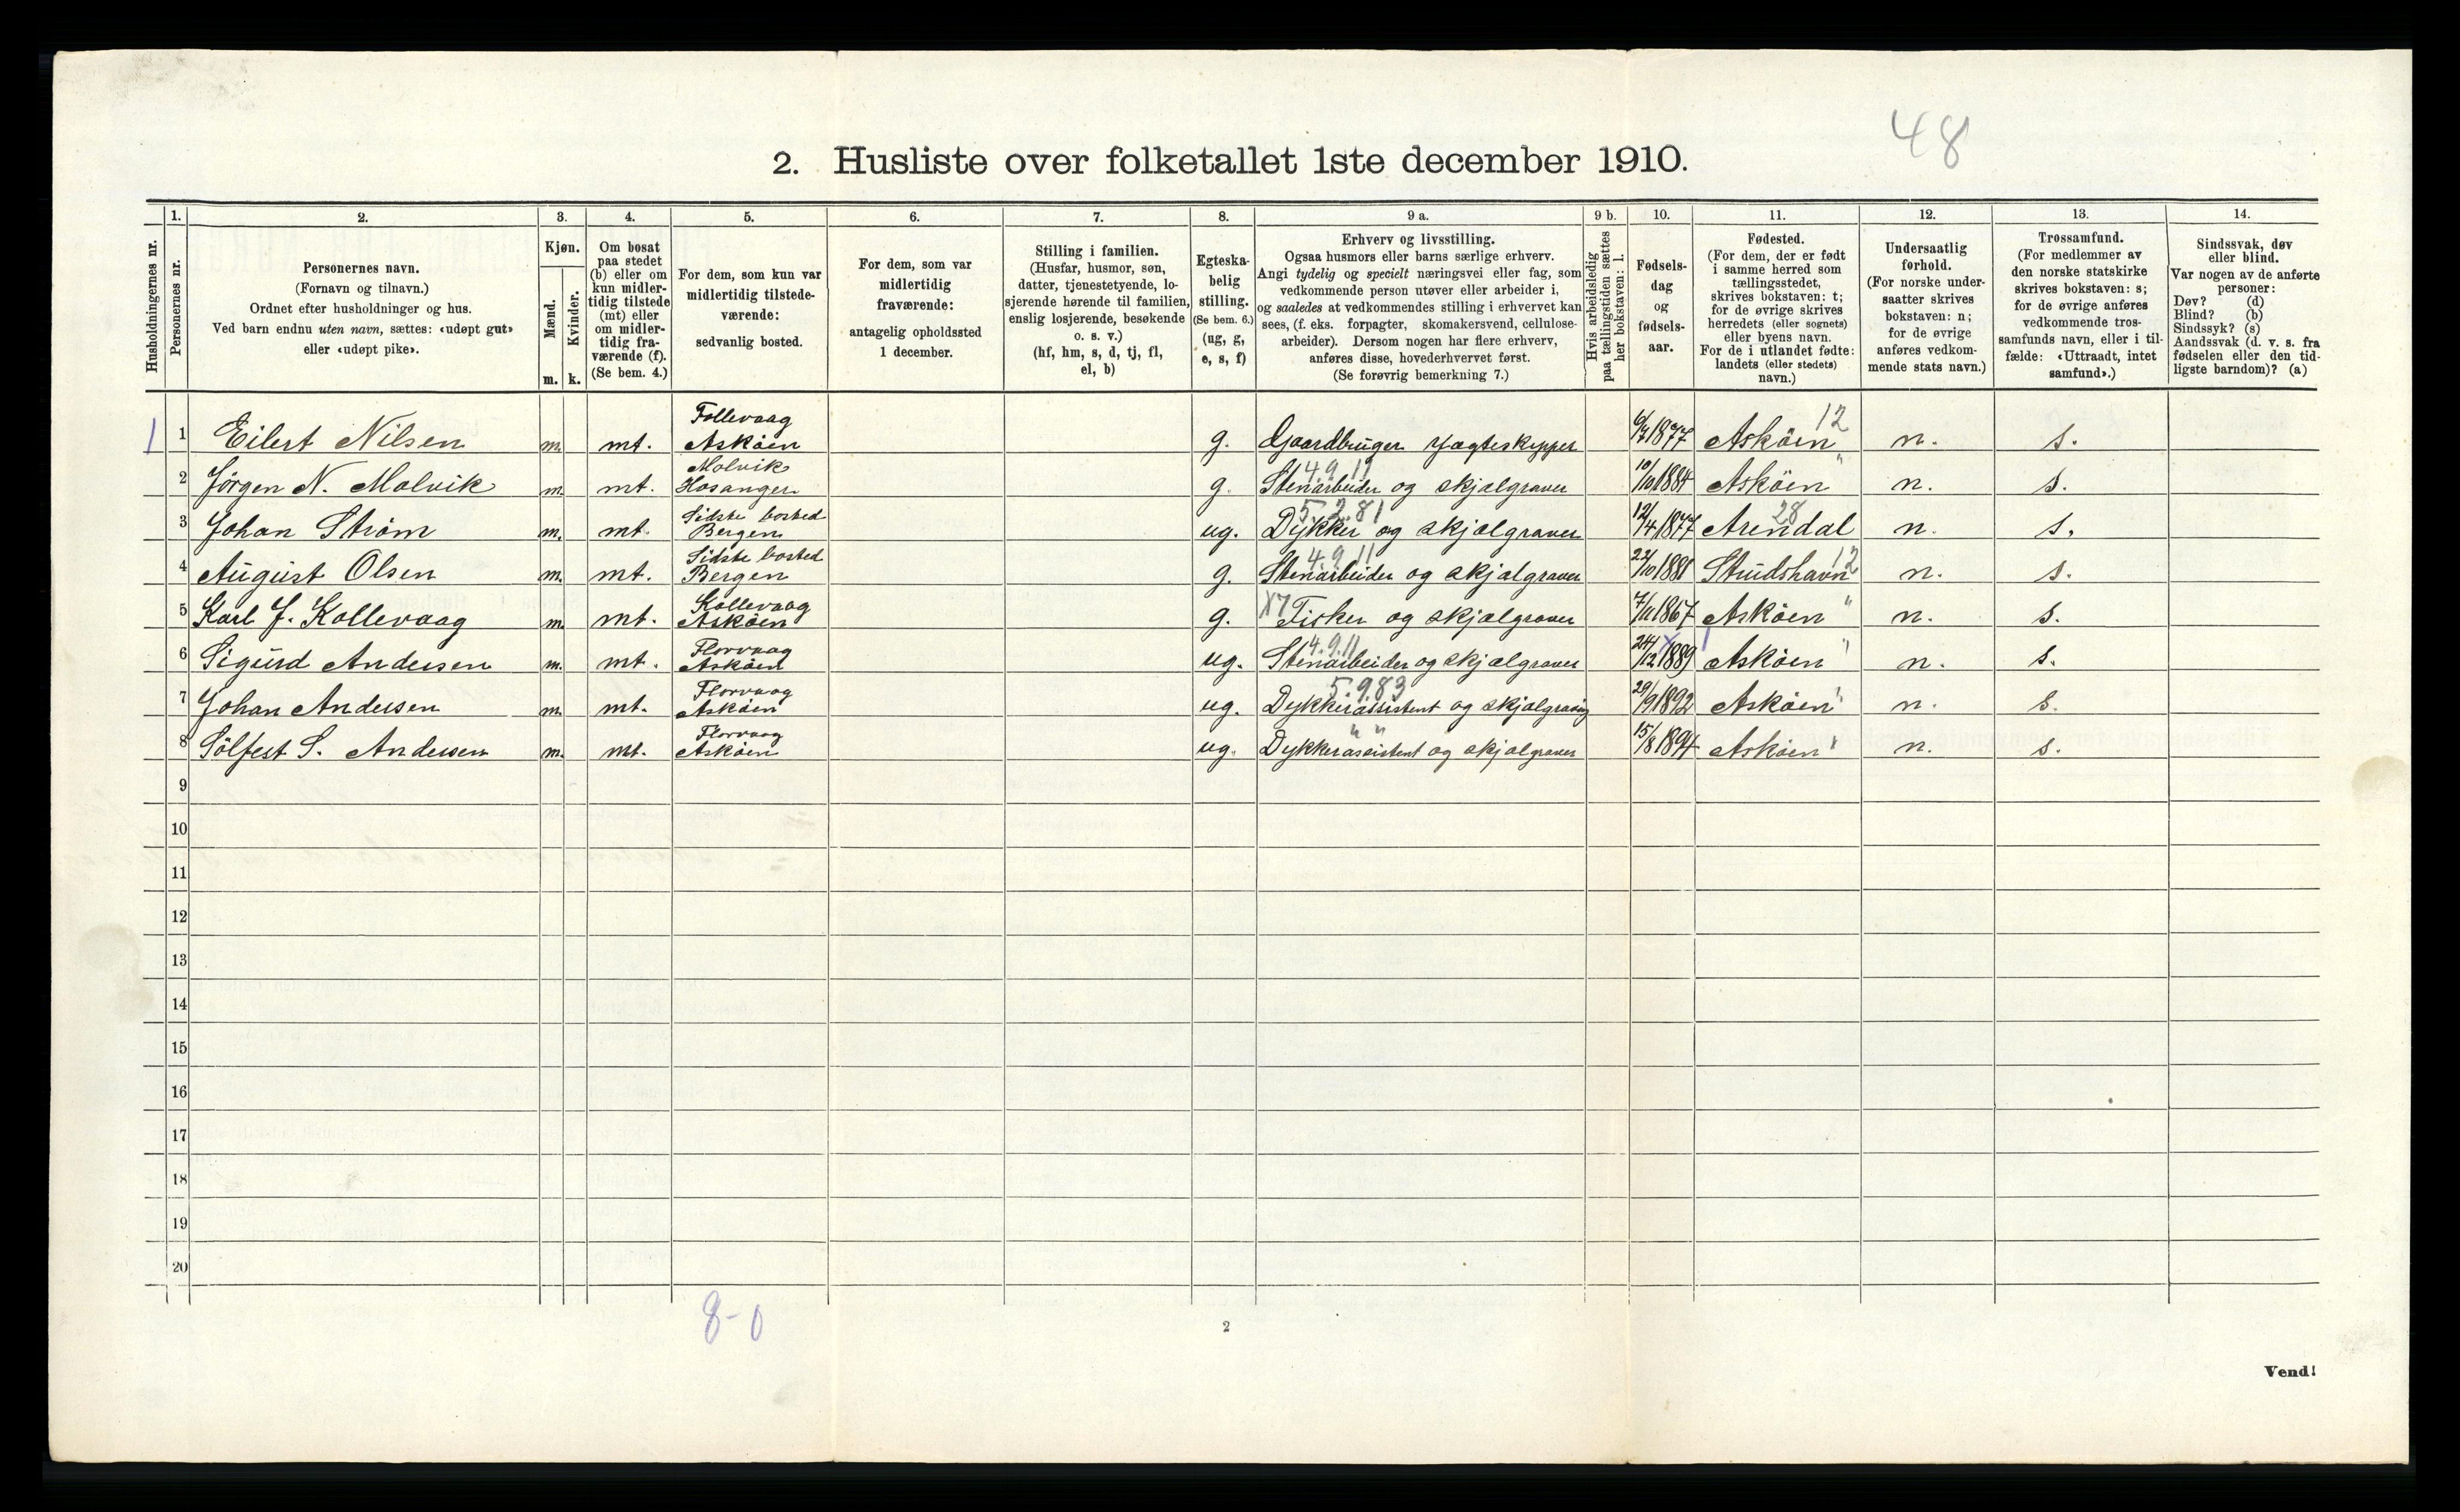 48
2. Husliste over folketallet 1ste december 1910.
Husholdningernes nr.
1.
Personernes nr.
2.
Personernes navn.
(Fornavn og tilnavn.)
Ordnet efter husholdninger og hus.
Ved barn endnu uten navn, sættes: «udøpt gut»
eller «udøpt pike».
3.
Kjøn.
Mænd.
Kvinder.
m. k.
4.
Om bosat
paa stedet
(b) eller om
kun midler-
tidig tilstede
(mt) eller
om midler-
tidig fra-
værende (f).
(Se bem. 4.)
5.
For dem, som kun var
midlertidig tilstede-
værende:
sedvanlig bosted.
6.
For dem, som var
midlertidig
fraværende:
antagelig opholdssted
1 december.
7.
Stilling i familien.
(Husfar, husmor, søn,
datter, tjenestetyende, lo-
sjerende hørende til familien,
enslig losjerende, besøkende
o. s. v.)
(hf, hm, s, d, tj, fl,
el, b)
8.
Egteska-
belig
stilling.
(Se bem. 6.)
(ug, g,
e, s, f)
9 a.
Erhverv og livsstilling.
Ogsaa husmors eller barns særlige erhverv.
Angi tydelig og specielt næringsvei eller fag, som
vedkommende person utøver eller arbeider i,
og saaledes at vedkommendes stilling i erhvervet kan
sees, (f. eks. forpagter, skomakersvend, cellulose-
arbeider). Dersom nogen har flere erhverv,
anføres disse, hovederhvervet først.
(Se forøvrig bemerkning 7.)
9 b.
Hvis arbeidsledig
paa tællingstiden sættes
her bokstaven: l.
10.
Fødsels-
dag
og
fødsels-
aar.
11.
Fødested.
(For dem, der er født
i samme herred som
tællingsstedet,
skrives bokstaven: t;
for de øvrige skrives
herredets (eller sognets)
eller byens navn.
For de i utlandet fødte:
landets (eller stedets)
navn.)
12.
Undersaatlig
forhold.
(For norske under-
saatter skrives
bokstaven: n;
for de øvrige
anføres vedkom-
mende stats navn.)
13.
Trossamfund.
(For medlemmer av
den norske statskirke
skrives bokstaven: s;
for de øvrige anføres
vedkommende tros-
samfunds navn, eller i til-
fælde: «Uttraadt, intet
samfund».)
14.
Sindssvak, døv
eller blind.
Var nogen av de anførte
personer:
Døv? (d)
Blind? (b)
Sindssyk? (s)
Aandssvak (d. v. s. fra
fødselen eller den tid-
ligste barndom)? (a)
1 1 Eilert Nilsen m. mt. Follevaag Askøen g. Gaardbruger Jagteskipper 6/7 1877 Askøen 12 n. s.
2 Jørgen N. Molvik m. mt. Molvik Hosanger g. Stenarbeider og skjælgraver 4.9.11 10/11 1884 Askøen " n. s.
3 Johan Strøm m. mt. Sidste bosted Bergen ug. Dykker og skjælgraver 5.2.81 12/4 1877 Arendal 28 n. s.
4 August Olsen m. mt. Sidste bosted Bergen g. Stenarbeider og skjælgraver 4.9.11 22/10 1881 Strudshavn 12 n. s.
5 Karl J. Kollevaag m. mt. Kollevaag Askøen g. X7 Fisker og skjælgraver 7/11 1867 Askøen " n. s.
6 Sigurd Andersen m. mt. Florvaag Askøen ug. Stenarbeider og skjælgraver 4.9.11 24/12 1889 Askøen " n. s.
7 Johan Andersen m. mt. Florvaag Askøen ug. Dykkerassistent og skjælgraving 5.9.83 29/9 1892 Askøen " n. s.
8 Sølfest S. Andersen m. mt. Florvaag Askøen ug. Dykkerassistent og skjælgraver " " 15/8 1894 Askøen " n. s.
9
10
11
12
13
14
15
16
17
18
19
20
8-0
2
Vend!